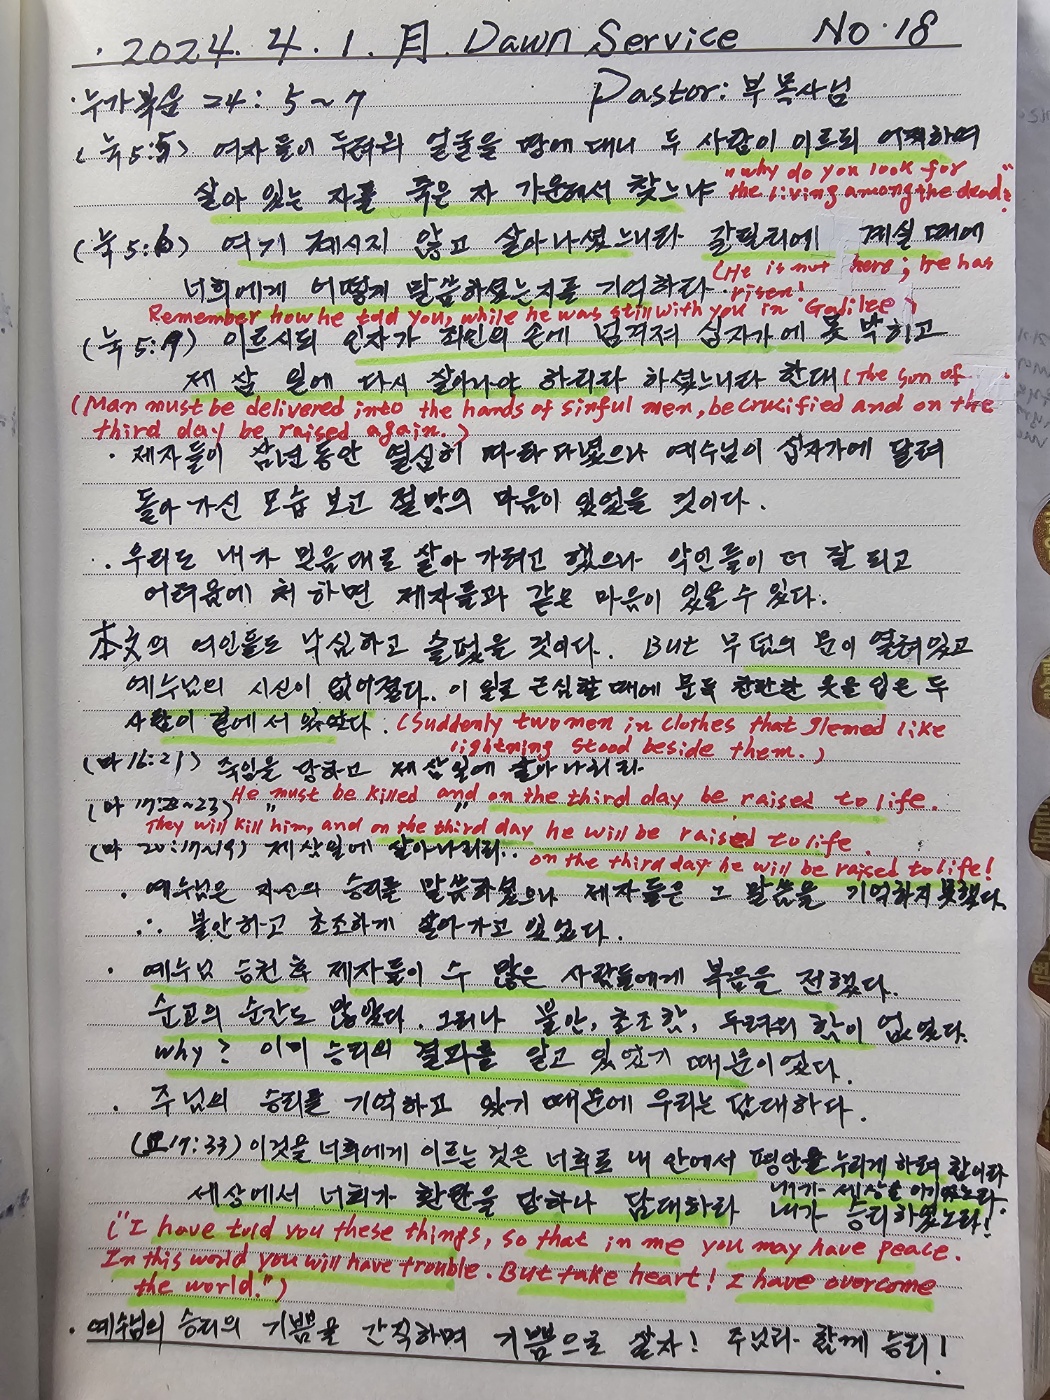 · 2024. 4. 1. 月. Dawn Service No. 18
· 누가복음 24: 5~7 Pastor: 부목사님
(눅5:5) 여자들이 두려워 얼굴을 땅에 대니 두 사람이 이르되 어찌하여
살아 있는 자를 죽은 자 가운데서 찾느냐 "why do you look for
the living among the dead?"
(눅5:6) 여기 계시지 않고 살아나셨느니라 갈릴리에 계실 때에
너희에게 어떻게 말씀하셨는지를 기억하라. (He is not here; he has
risen!
Remember how he told you, while he was still with you in Galilee)
(눅5:7) 이르시되 인자가 죄인의 손에 넘겨져 십자가에 못 박히고
제 삼 일에 다시 살아나야 하리라 하셨느니라 한대 (The son of
(Man must be delivered into the hands of sinful men, be crucified and on the
third day be raised again.)
· 제자들이 삼년 동안 열심히 따라 다녔으나 예수님이 십자가에 달려
돌아 가신 모습 보고 절망의 마음이 있었을 것이다.
· 우리도 내가 믿음대로 살아 가려고 했으나 악인들이 더 잘 되고
어려움에 처하면 제자들과 같은 마음이 있을 수 있다.
本文의 여인들도 낙심하고 슬펐을 것이다. But 무덤의 문이 열려있고
예수님의 시신이 없어졌다. 이 일로 근심할 때에 문득 찬란한 옷을 입은 두
사람이 곁에 서 있었다. (Suddenly two men in clothes that glemed like
lightning stood beside them.)
(마16:21) 죽임을 당하고 제 삼일에 살아나리라.
(마 17:22~23) He must be killed and on the third day be raised to life.
" "
They will kill him, and on the third day he will be raised to life.
(마 20:17~19) 제 삼일에 살아나리라. on the third day he will be raised to life!
· 예수님은 자신의 승리를 말씀하셨으나 제자들은 그 말씀을 기억하지 못했다.
∴ 불안하고 초조하게 살아가고 있었다.
· 예수님 승천 후 제자들이 수 많은 사람들에게 복음을 전했다.
순교의 순간도 많았다. 그러나 불안, 초조함, 두려워 함이 없었다.
why? 이미 승리의 결과를 알고 있었기 때문이었다.
· 주님의 승리를 기억하고 있기 때문에 우리는 담대하다.
(요17:33) 이것을 너희에게 이르는 것은 너희로 내 안에서 평안을 누리게 하려 함이라
세상에서 너희가 환란을 당하나 담대하라 내가 세상을 이기었노라.
내가 승리하였노라!
("I have told you these things, so that in me you may have peace.
In this world you will have trouble. But take heart! I have overcome
the world.")
· 예수님의 승리의 기쁨을 간직하며 기쁨으로 살자! 주님과 함께 승리!